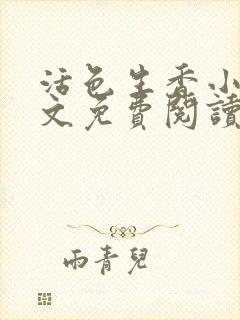 活色生香小
文免費閱讀
雨青兒